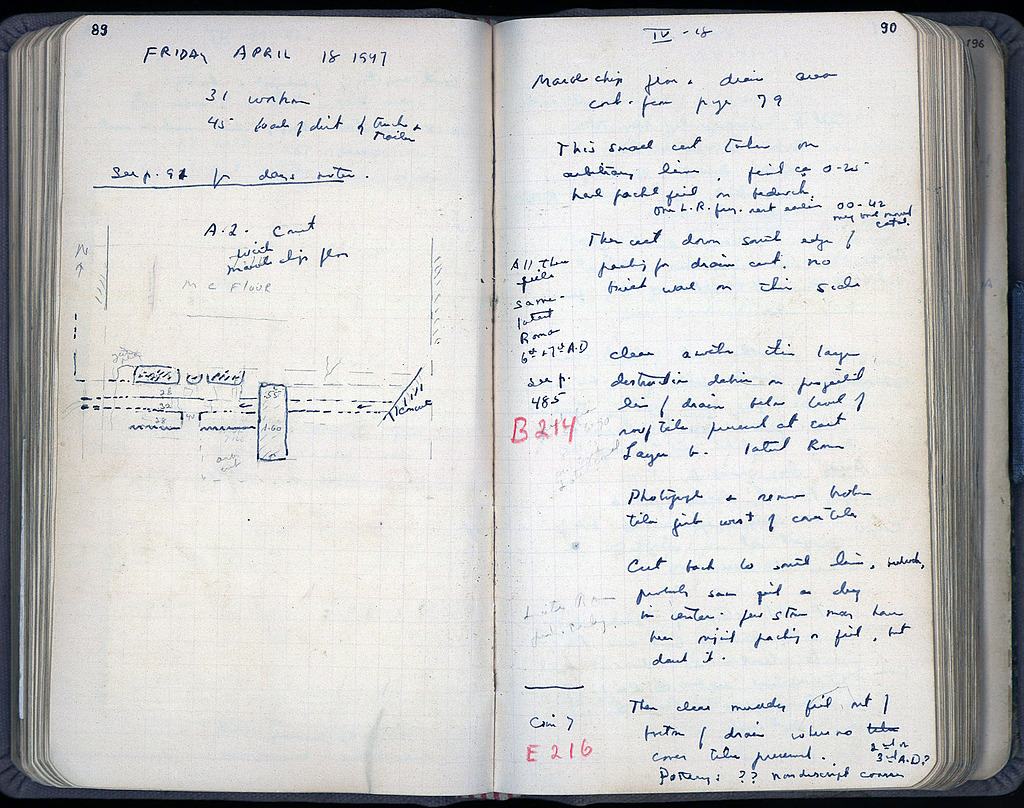 89
FRIDAY APRIL 18 1947
31 workmen
45 loads of dirt of truck &
trailer
See p. 91 for days notes.
A.2. Court
with
marble chips floor
N
M C FLOOR
28
32
28
40
.55
1.60
90
IV - 18
Marble chip floor & drain area
cont. from page 79
This small cut taken on
arbitrary line, fill ca 0-25
hard packed fill on bedrock.
One L.R. frag. next 00-42
may
Then cut down south edge of
packing for drain cut. no
brick wall on this side
All the
fills
same -
latest
Roman
6th + 7th A.D
see p.
485
B 214
clean
destruction debris on projected
line of drain below level of
roof tile present at east
Layer b. latest Roman
Photograph & remove broken
tile just west of cover tile
Cut back to south line, bedrock,
probably same fill as
in center. few stones may have
been packing or fill, but
doubt it.
Later Roman
Coin 7
E 216
Then clear muddy fill out of
bottom of drain where no
cover tile present.
2nd or
3rd A.D?
Pottery: ?? nondescript coarse